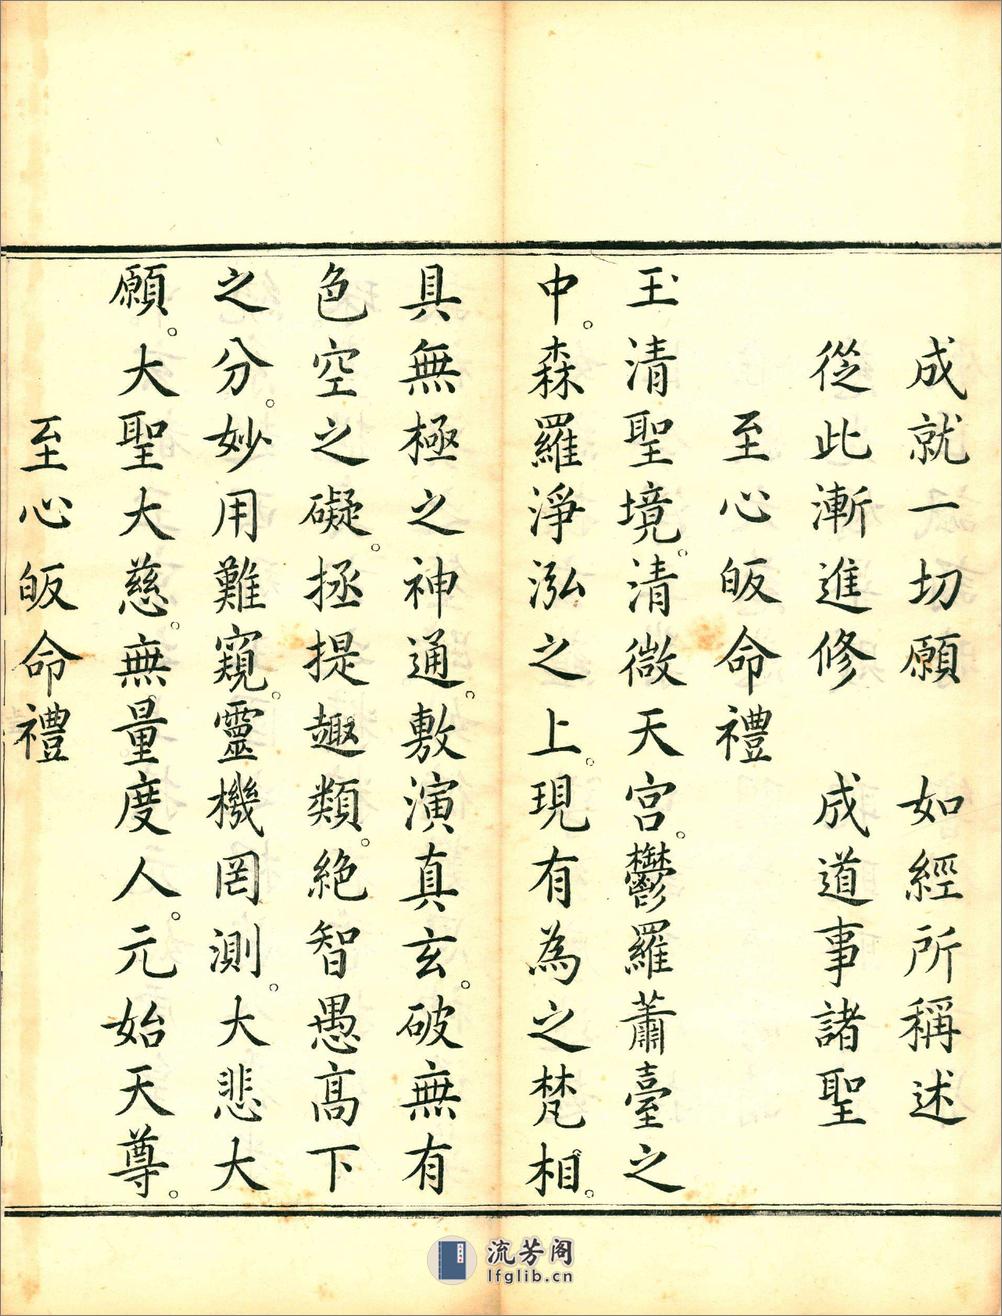 成就一切願　如經所稱述
從此漸進修　成道事諸聖
至心皈命禮
玉清聖境。清微天宮。鬱羅蕭臺之
中。森羅淨泓之上。現有為之梵相。
具無極之神通。敷演真玄。破無有
色空之礙。拯提趣類。絶智愚高下
之分。妙用難窺。靈機罔測。大悲大
願。大聖大慈。無量度人。元始天尊。
至心皈命禮
流芳阁
lfglib.cn